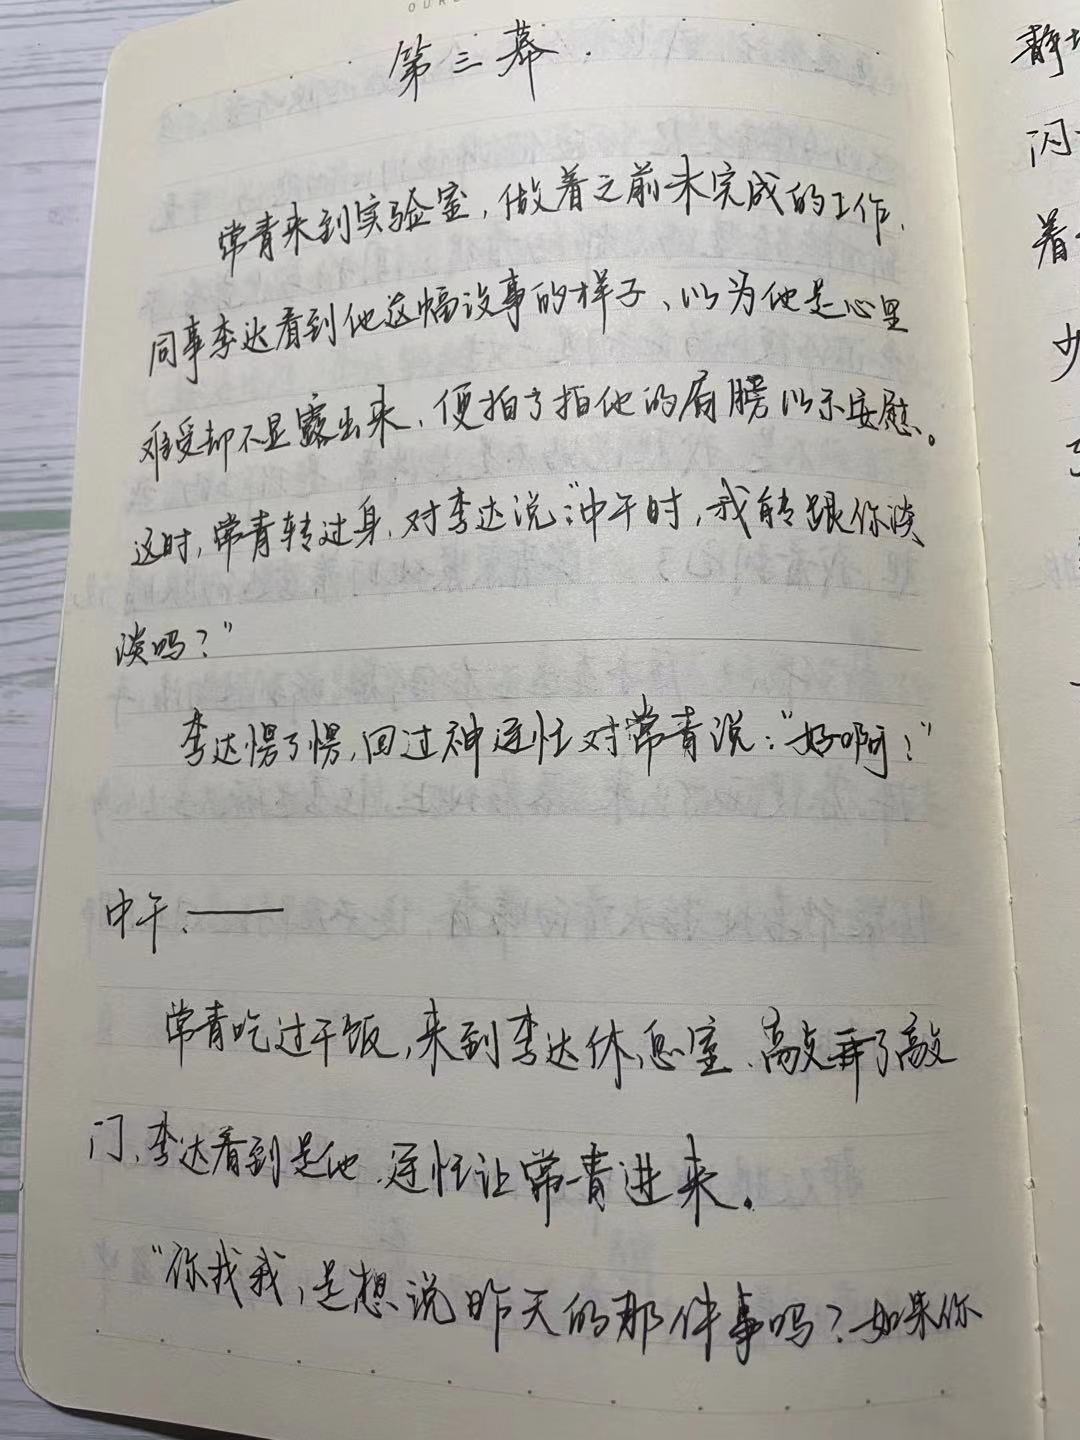 第三幕.
常青来到实验室,做着之前未完成的工作.
同事李达看到他这幅没事的样子、以为他是心里
难受却不显露出来,便拍了拍他的肩膀以示安慰。
这时,常青转过身,对李达说:"中午时,我能跟你谈
谈吗?"
李达愣了愣,回过神连忙对常青说:"好啊!"
中午:——
常青吃过午饭,来到李达休息室、敲了敲
门、李达看到是他、连忙让常青进来。
"你找我,是想说昨天的那件事吗?如果你
静
闪
着
少